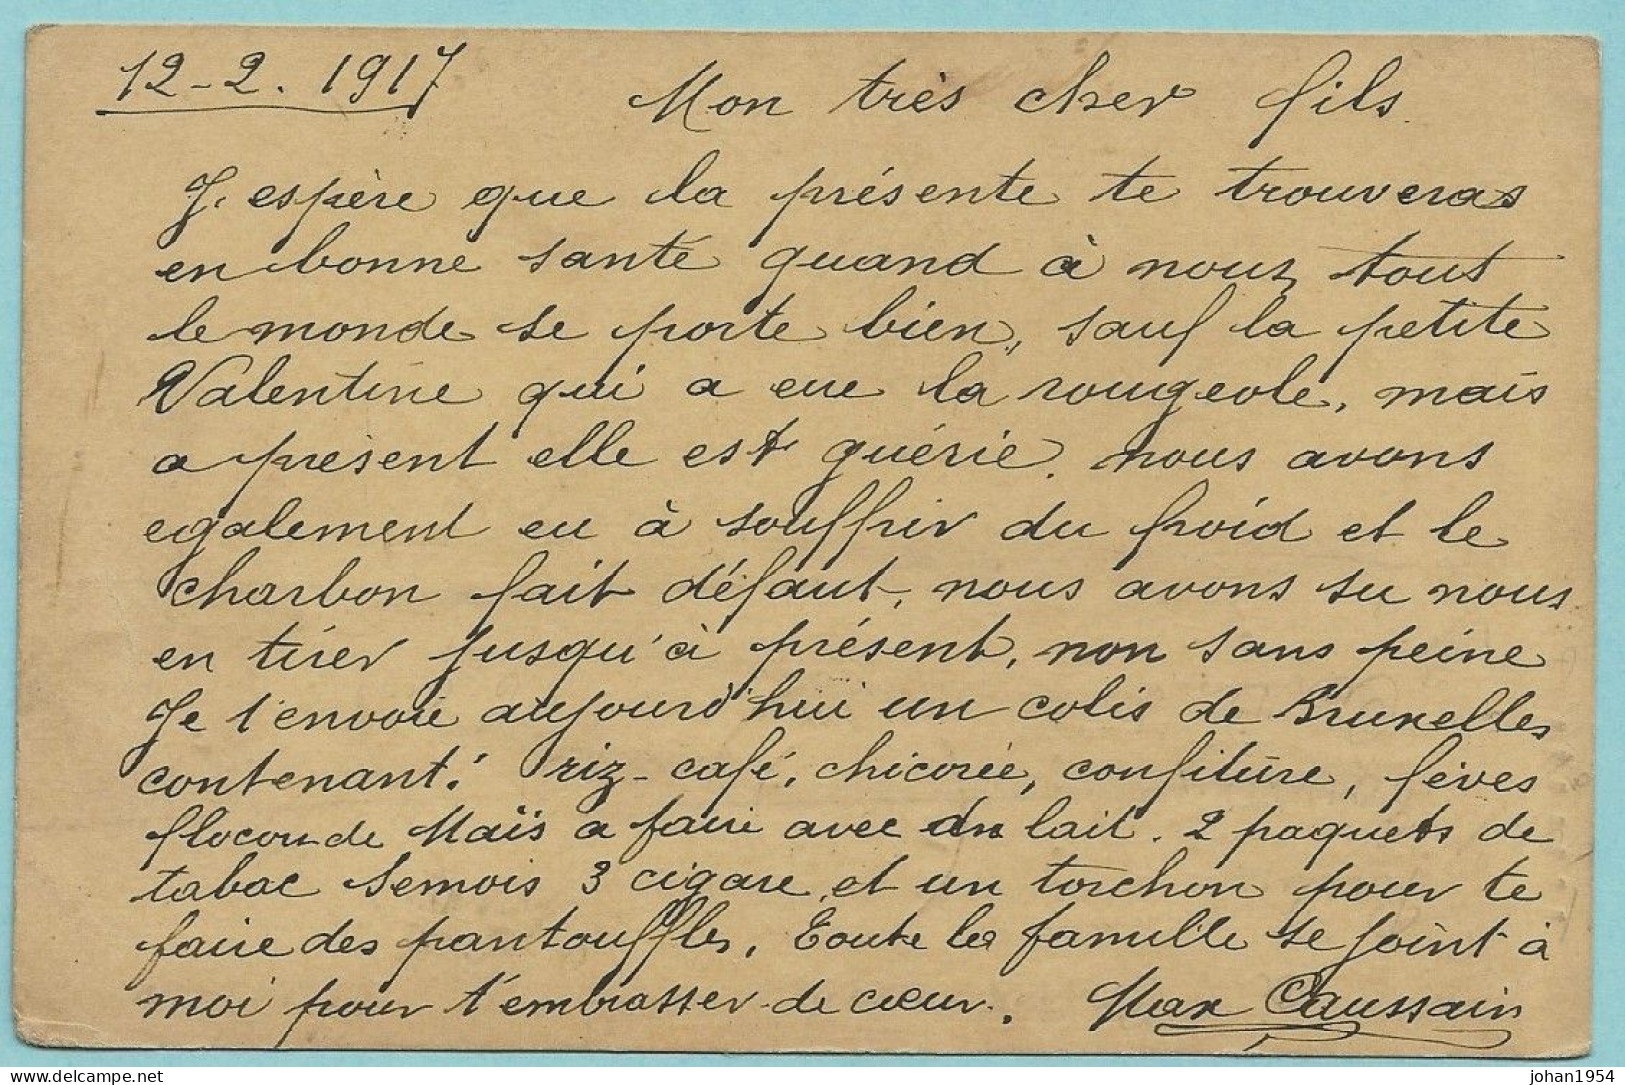 12-2. 1917
Mon très cher fils.
J. espère que la présente te trouveras
en bonne santé quand à nous, tout
le monde se porte bien, sauf la petite
Valentine qui a eue la rougeole, mais
a présent elle est guérie. nous avons
egalement eu à souffrir du froid et le
charbon fait défaut, nous avons su nous
en tirer jusqu'à présent, non sans peine
Je t'envoie aujourd'hui un colis de Bruxelles
contenant: riz - café, chicorée, confiture, fèves
flocon de Maïs a faire avec du lait. 2 paquets de
tabac Semois 3 cigare, et un torchon pour te
faire des pantouffles, Toute la famille se joint à
moi pour t'embrasser de cœur. Max Caussain
delcampe.net
johan1954